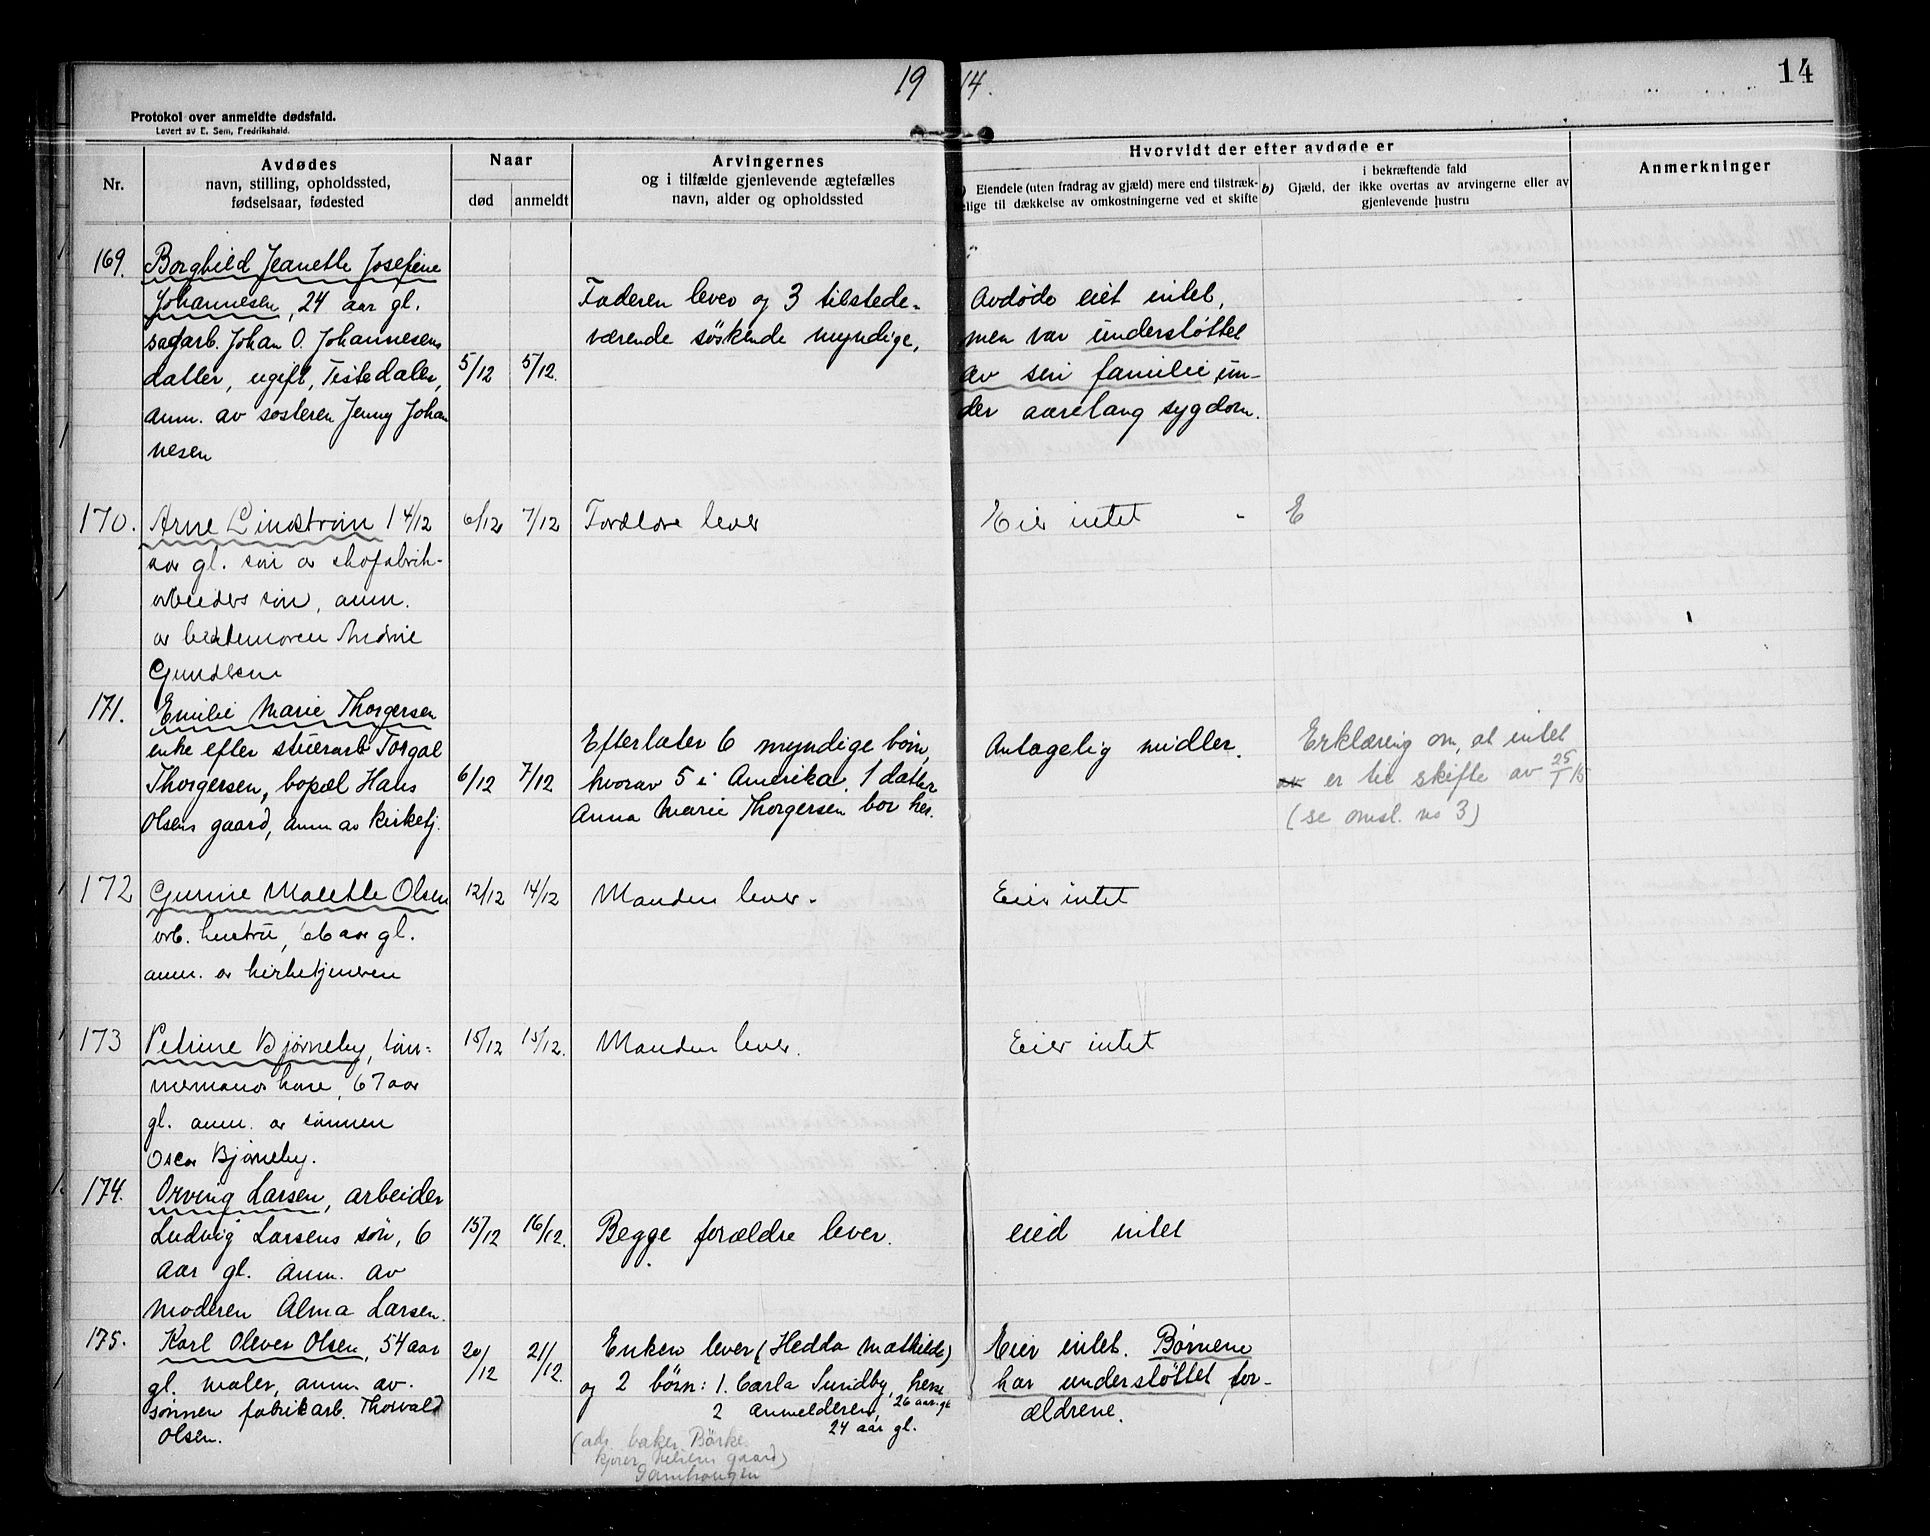 19 14.
14
Protokol over anmeldte dødsfald.
Levert av E. Sem, Fredrikshald.
Nr.
Avdødes
navn, stilling, opholdssted,
fødselsaar, fødested
Naar
død
anmeldt
Arvingernes
og i tilfælde gjenlevende ægtefælles
navn, alder og opholdssted
Hvorvidt der efter avdøde er
Eiendele (uten fradrag av gjæld) mere end tilstræk-
elige til dækkelse av omkostningerne ved et skifte
i bekræftende fald
b) Gjæld, der ikke overtas av arvingerne eller av
gjenlevende hustru
Anmerkninger
169.
Borghild Jeanette Josefine
Johannesen, 24 aar gl.
sagarb. Johan O. Johannesens
datter, ugift, Tistedalen,
anm. av søsteren Jenny Johan
nesen
5/12
5/12.
Faderen lever og 3 tilstede-
værende søskende myndige,
Avdøde eiet intet,
men var understøttet
av sin familie un-
der aarelang sygdom.
170.
Arne Lindstrøm 1 4/12
aar gl. søn av skofabrik-
arbeiders søn, anm.
av bestemoren Andrine
Gundersen
6/12
7/12
Forældre lever
Eier intet -
E
171.
Emilie Marie Thorgersen
enke efter stuerarb Torgal
Thorgersen, bopæl Hans
Olsens gaard, anm av kirketj.
6/12
7/12
Efterlater 6 myndige børn,
hvorav 5 i Amerika. 1 datter
Anna Marie Thorgersen bor her.
Antagelig midler.
Erklæring om, at intet
av er til skifte av 25/1 15
(se omsl. no 3)
172
Gunine Malette Olsen
arb. hustru, 66 aar gl.
anm. av kirketjeneren
12/12
14/12
Manden lever.
Eier intet
173
Petrine Bjørneby, tøm-
mermands kone, 67 aar
gl. anm. av sønnen
Oscar Bjørneby.
15/12
15/12.
Manden lever.
Eier intet
174.
Orving Larsen, arbeider
Ludvig Larsens søn, 6
aar gl. anm. av
moderen Alma Larsen.
15/12
16/12.
Begge forældre lever.
eied intet
175.
Karl Oliver Olsen, 54 aar
gl. maler, anm. av.
sønnen fabrikarb. Thorvald
Olsen.
20/12
21/12.
Enken lever (Hedda Mathilde)
og 2 børn: 1. Carla Sundby, her
26 aar gl
2 Anmelderen,
24 aar gl.
(adr. baker Børke
gaard)
Damhaugen
Eier intet. Børnene
har understøttet for-
ældrene.